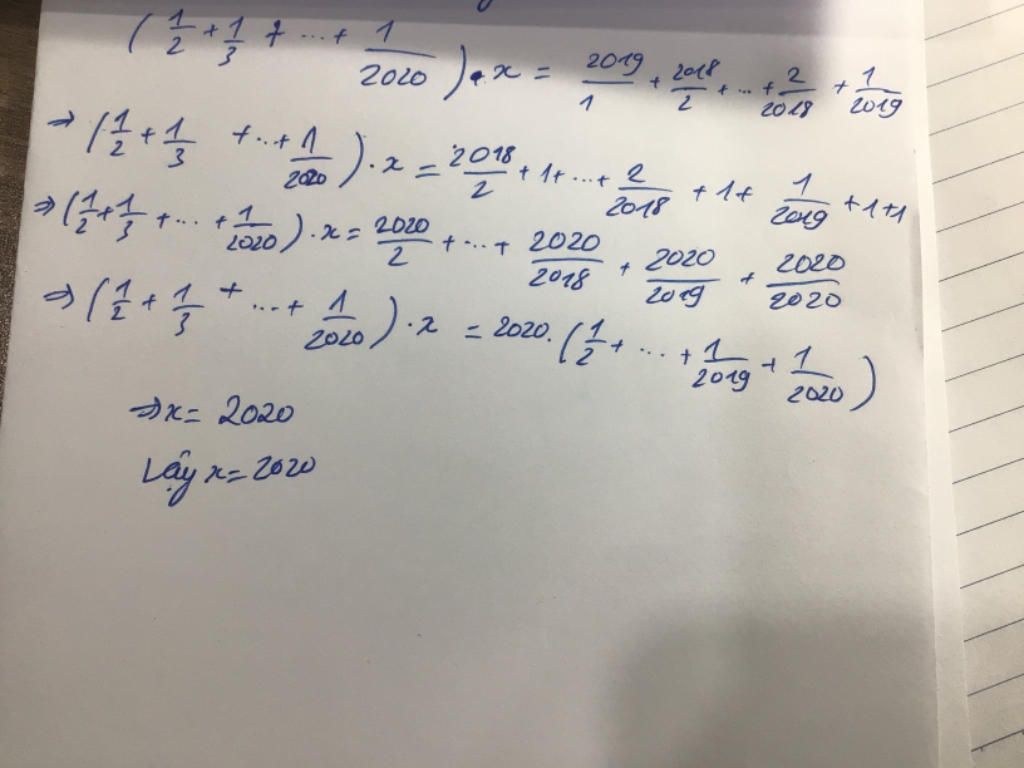 (1/2 + 1/3 + ... + 1/2020) . x = 2019/1 + 2018/2 + ... + 2/2018 + 1/2019
⇒ (1/2 + 1/3 + ... + 1/2020) . x = 2018/2 + 1 + ... + 2/2018 + 1 + 1/2019 + 1 + 1
⇒ (1/2 + 1/3 + ... + 1/2020) . x = 2020/2 + ... + 2020/2018 + 2020/2019 + 2020/2020
⇒ (1/2 + 1/3 + ... + 1/2020) . x = 2020 . (1/2 + ... + 1/2019 + 1/2020)
⇒ x = 2020
Vậy x = 2020